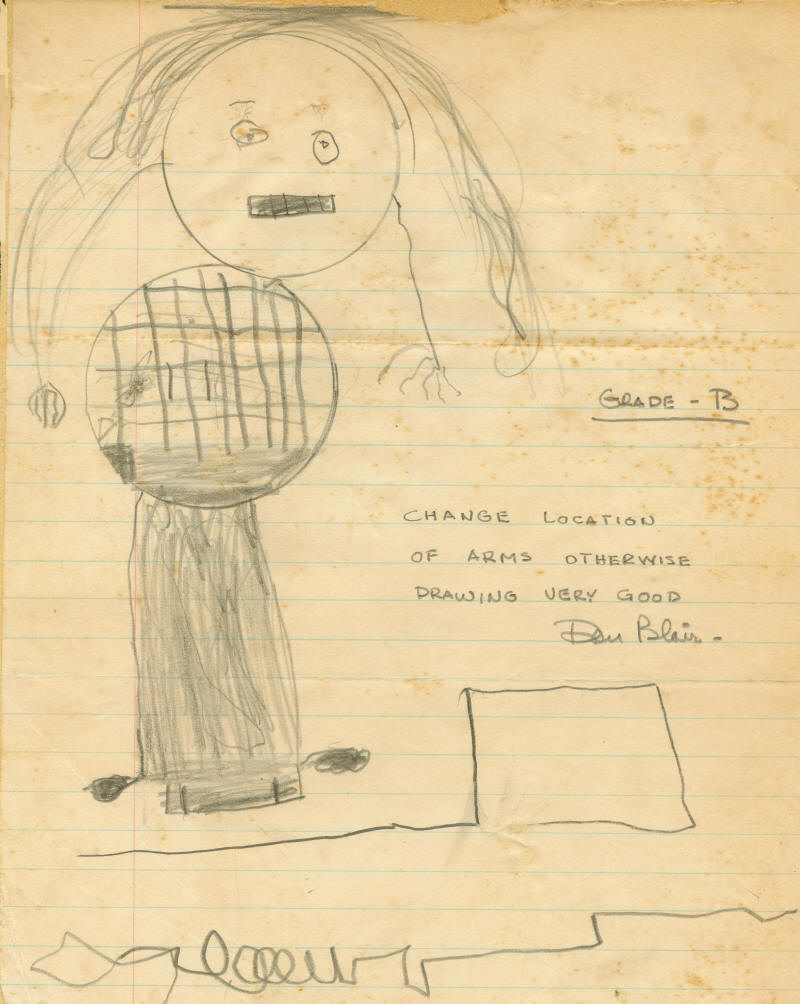 GRADE - B
CHANGE LOCATION
OF ARMS OTHERWISE
DRAWING VERY GOOD
Don Blair -